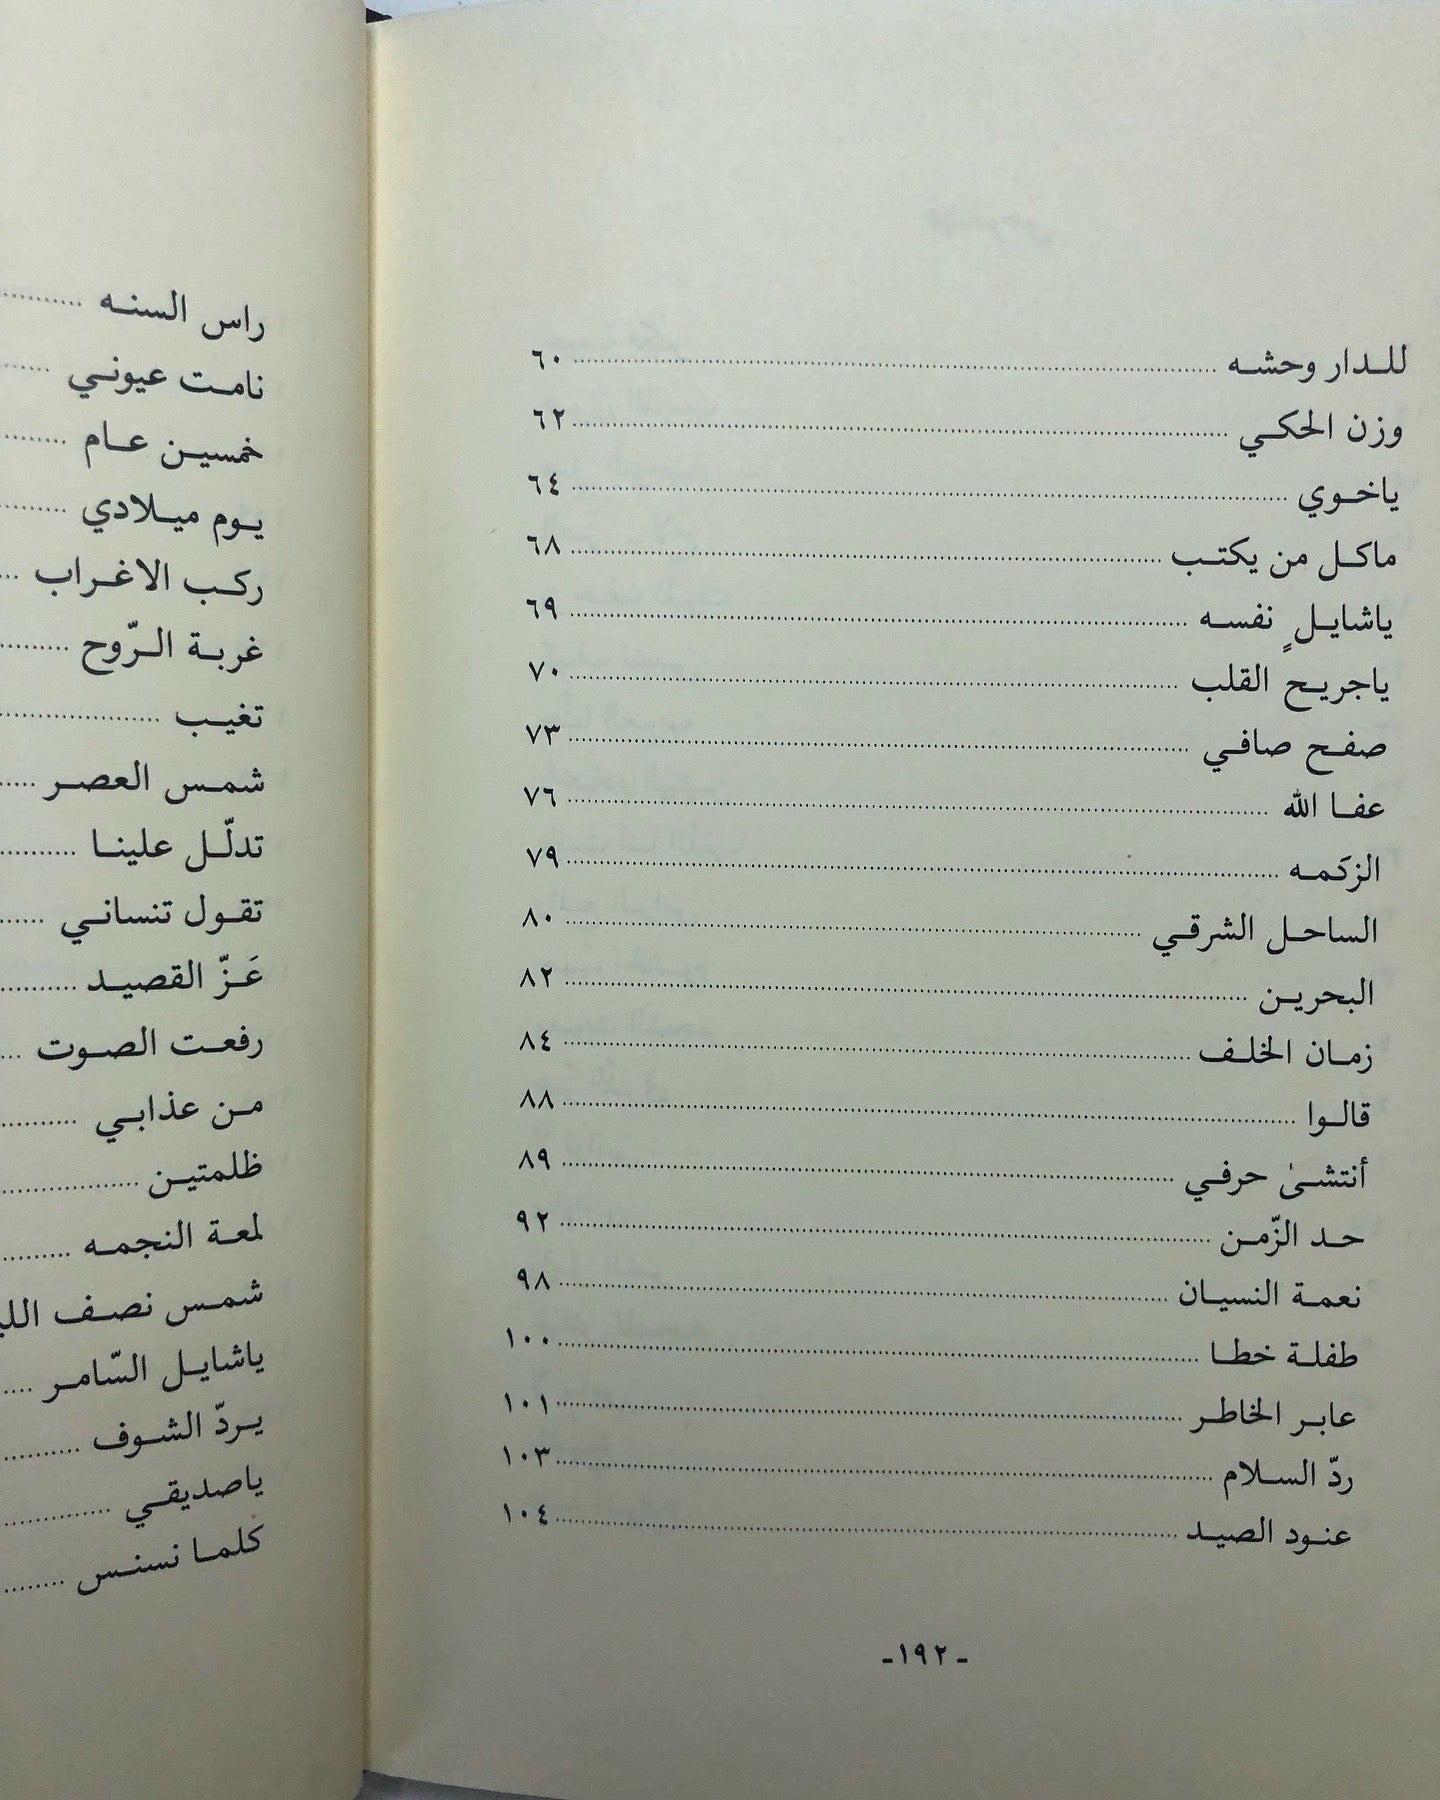 للدار وحشه ........ ٦٠
وزن الحكي ........ ٦٢
ياخوي ........ ٦٤
ماكل من يكتب ........ ٦٨
ياشايلٍ نفسه ........ ٦٩
ياجريح القلب ........ ٧٠
صفح صافي ........ ٧٣
عفا الله ........ ٧٦
الزكَمه ........ ٧٩
الساحل الشرقي ........ ٨٠
البحرين ........ ٨٢
زمان الخلف ........ ٨٤
قالوا ........ ٨٨
أنتشىٰ حرفي ........ ٨٩
حد الزّمن ........ ٩٢
نعمة النسيان ........ ٩٨
طفلة خطا ........ ١٠٠
عابر الخاطر ........ ١٠١
ردّ السلام ........ ١٠٣
عنود الصيد ........ ١٠٤
-١٩٢-
راس السنه ........
نامت عيوني ........
خمسين عام ........
يوم ميلادي ........
ركب الاغراب ........
غربة الرّوح ........
تغيب ........
شمس العصر ........
تدلّل علينا ........
تقول تنساني ........
عَزّ القصيد ........
رفعت الصوت ........
من عذابي ........
ظلمتين ........
لمعة النجمه ........
شمس نصف
ياشايل السّامر ........
يردّ الشوف ........
ياصديقي ........
كلما نسنس ........